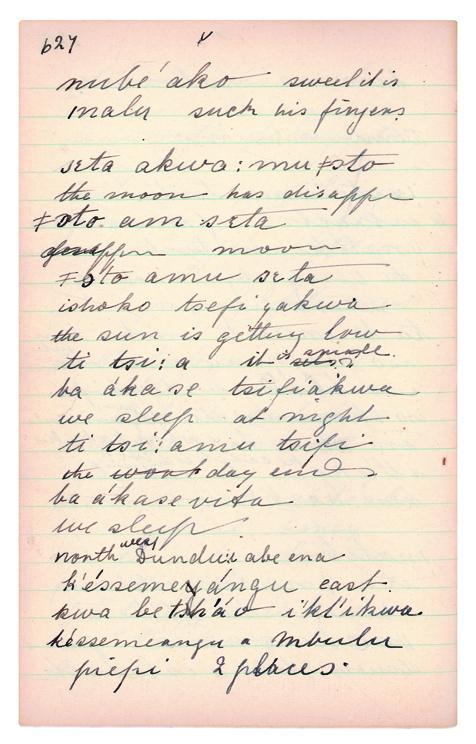 627
nubé ako
malu suck his fingers
seta akwa: mu ǂsto
the moon has disappr
ǂoto am seta
moon
ǂoto amu seta
ishoko tsefi yakwa
the sun is getting low
ti tsi: a it is
ba ákase tsifiákwa
we sleep at night
ti tsi: amu tsifi
the day ends
ba ákase vita
we sleep
north west Dundwi abe ena
k'éssemeyángu east
kwa be tsháo ikl'ikwa
késsemeangu a mbulu
piepi 2 places.